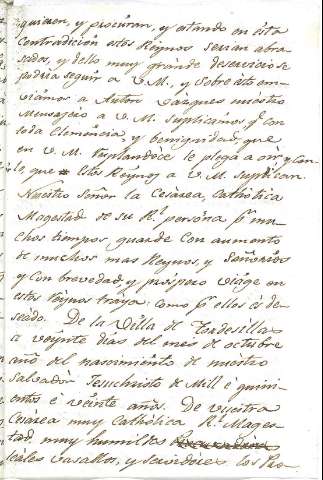 quieren, y procuran, y estando en ésta
Contradicion estos Reynos serian abra-
sados, y dello muy grande deservicio se
podria seguir a V.M., y sobre ésto em-
viamos a Anton Vazques nuestro
Mensagero a V.M. Suplicamos q.e con
toda Clemencia, y benignidad, que
en V.M. resplandece le plega a oir, y con
lo, que estos Reynos a V.M. suplican.
Nuestro Señor la Cesárea, Cathólica
Magestad de su R.l persona p.r mu-
chos tiempos, guarde con aumento
de muchos mas Reynos, y Señoríos
y con brevedad, y próspero Viáge en
estos Reynos trayga: como p.r ellos és de-
seádo. De la Villa de Tordesillas
a veynte dias del més de octubre
año del nascimiento de nuestro
Salvador Jesuchristo de Mill é quini-
entos é veinte años. De vuestra
Cesárea muy Cathólica R.l Mages-
tad. muy humildes
leáles vasallos, y servidores los Pro-